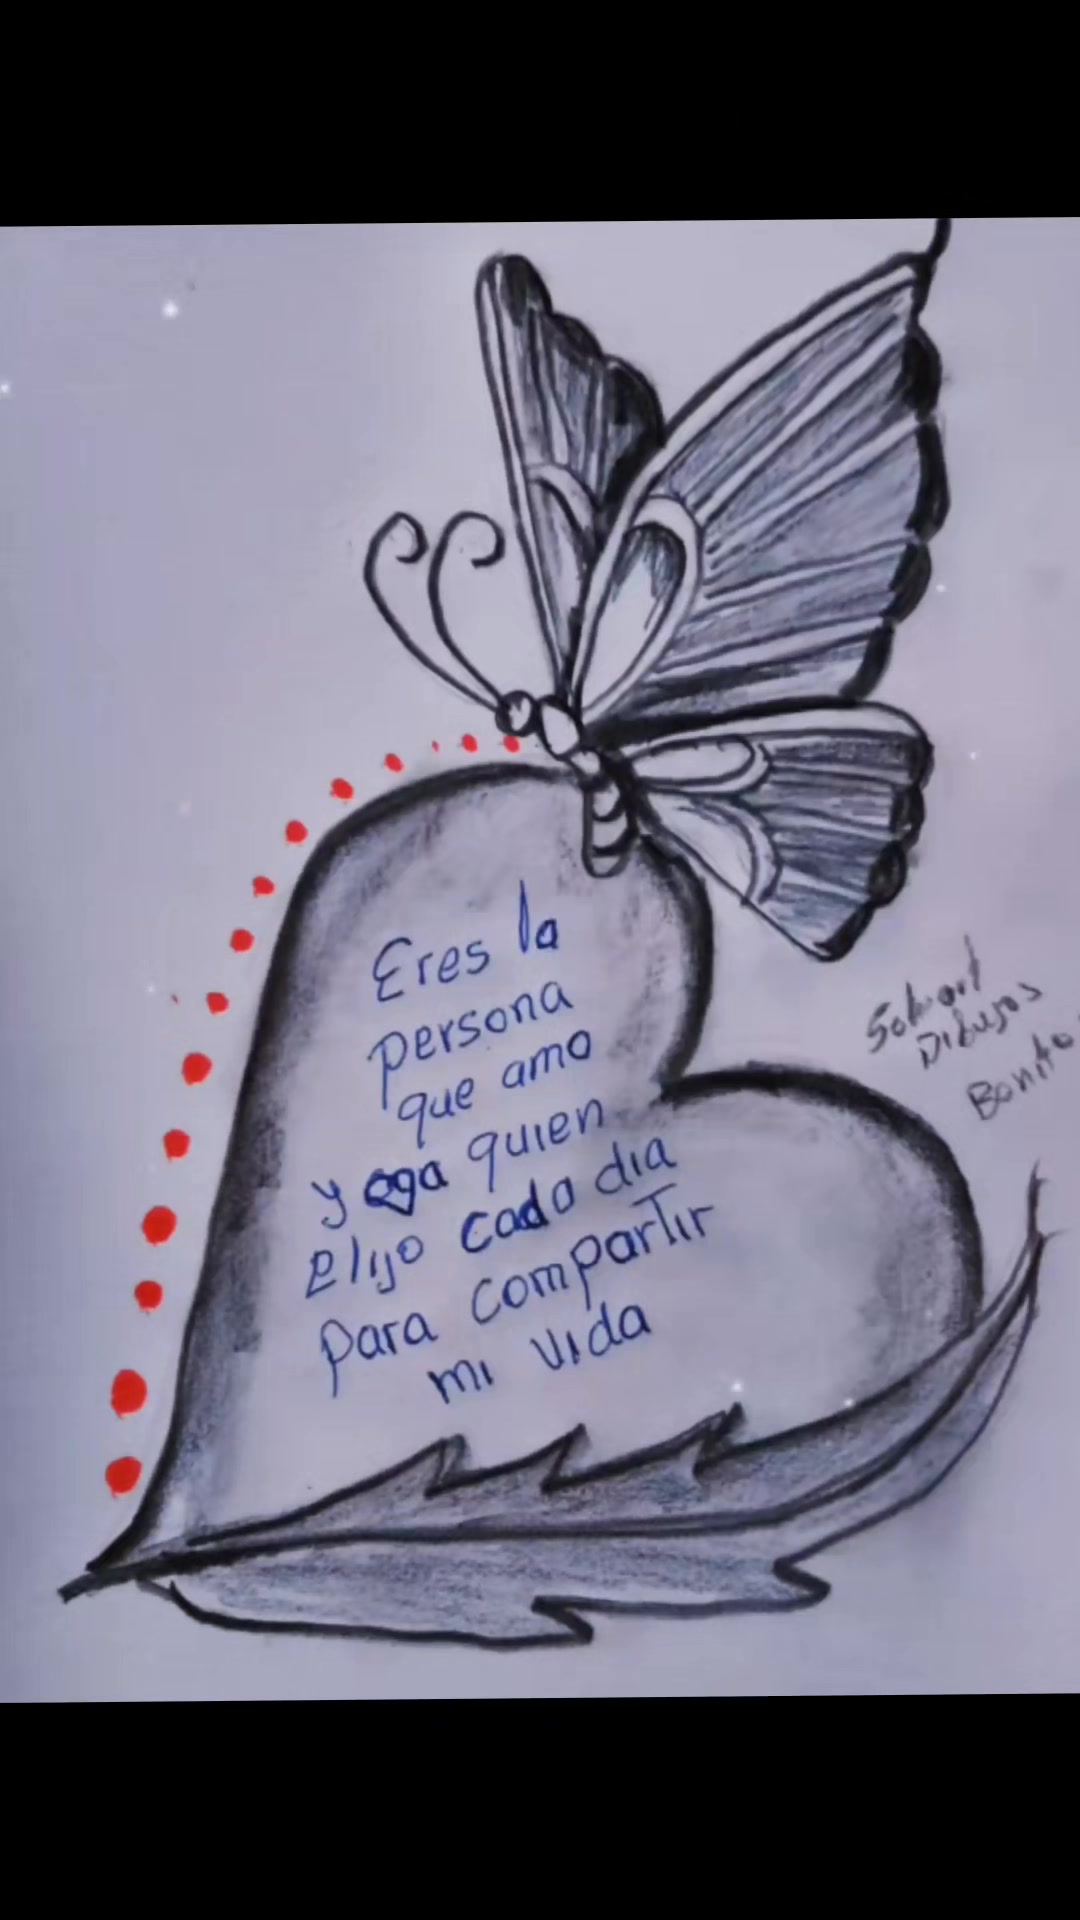 Eres la
persona
que amo
y a quien
elijo cada dia
para compartir
mi vida
Dibujos
Bonito